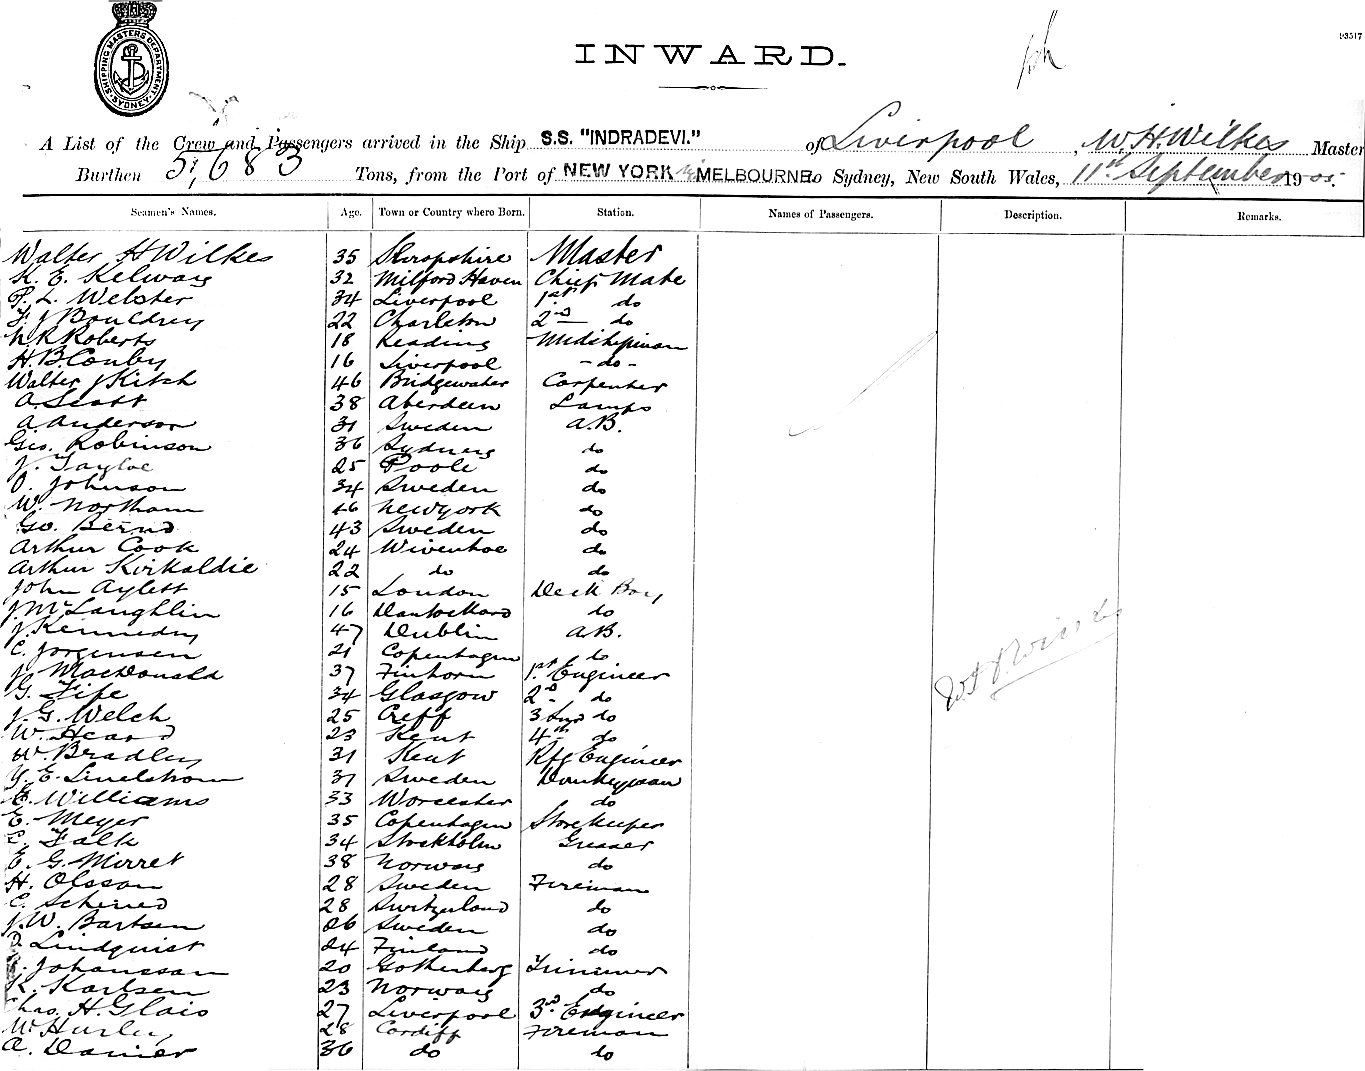 SHIPPING MASTERS DEPARTMENT SYDNEY
INWARD.
93517
A List of the Crew and Passengers arrived in the Ship S.S. "INDRADEVI." of Liverpool, W. H. Wilkes Master
Burthen 5,683 Tons, from the Port of NEW YORK MELBOURNE to Sydney, New South Wales, 11th September 1905.
Seamen's Names. Age. Town or Country where Born. Station. Names of Passengers. Description. Remarks.
Walter H Wilkes 35 Shropshire Master
K. E. Kelway 32 Milford Haven Chief Mate
P. L. Webster 34 Liverpool 1st do
F J Bouldrey 22 Charlston 2nd do
N R Roberts 18 Reading Midshipman
H. B. Conby 16 Liverpool - do -
Walter J Kitch 46 Bridgewater Carpenter
A. Scott 38 Aberdeen Lamps
A. Anderson 31 Sweden A.B.
Geo. Robinson 36 Sydney do
J. Tayloe 25 Poole do
O. Johnson 34 Sweden do
W. Northam 46 New york do
Go. Bernd 43 Sweden do
Arthur Cook 24 Wivenhoe do
Arthur Kirkaldie 22 do do
John Aylett 15 London Deck Boy
J McLaughlin 16 do
J. Kennedy 47 Dublin A.B.
C. Jorgensen 21 Copenhagen do
J MacDonald 37 Finhorn 1st Engineer
G. Fife 34 Glasgow 2nd do
J. G. Welch 25 Creff 3 do
W. Heard 23 Kent 4th do
W. Bradley 31 Kent Rfg Engineer
Y. E. Linelstrom 31 Sweden Donkeyman
E. Williams 33 Worcester do
E. Meyer 35 Copenhagen Storekeeper
C. Falk 34 Stockholm Greaser
E. G. Mirret 38 Norway do
H. Olsson 28 Sweden Fireman
C. Schirred 28 Switzerland do
J. W. Bartsen 26 Sweden do
Lindquist 24 Finland do
Johansson 20 Gothenberg Trimmer
K. Karlsen 23 Norway do
Chas. H. Glais 27 Liverpool 3rd Engineer
W Hurley 28 Cardiff Fireman
A. Danier 36 do do